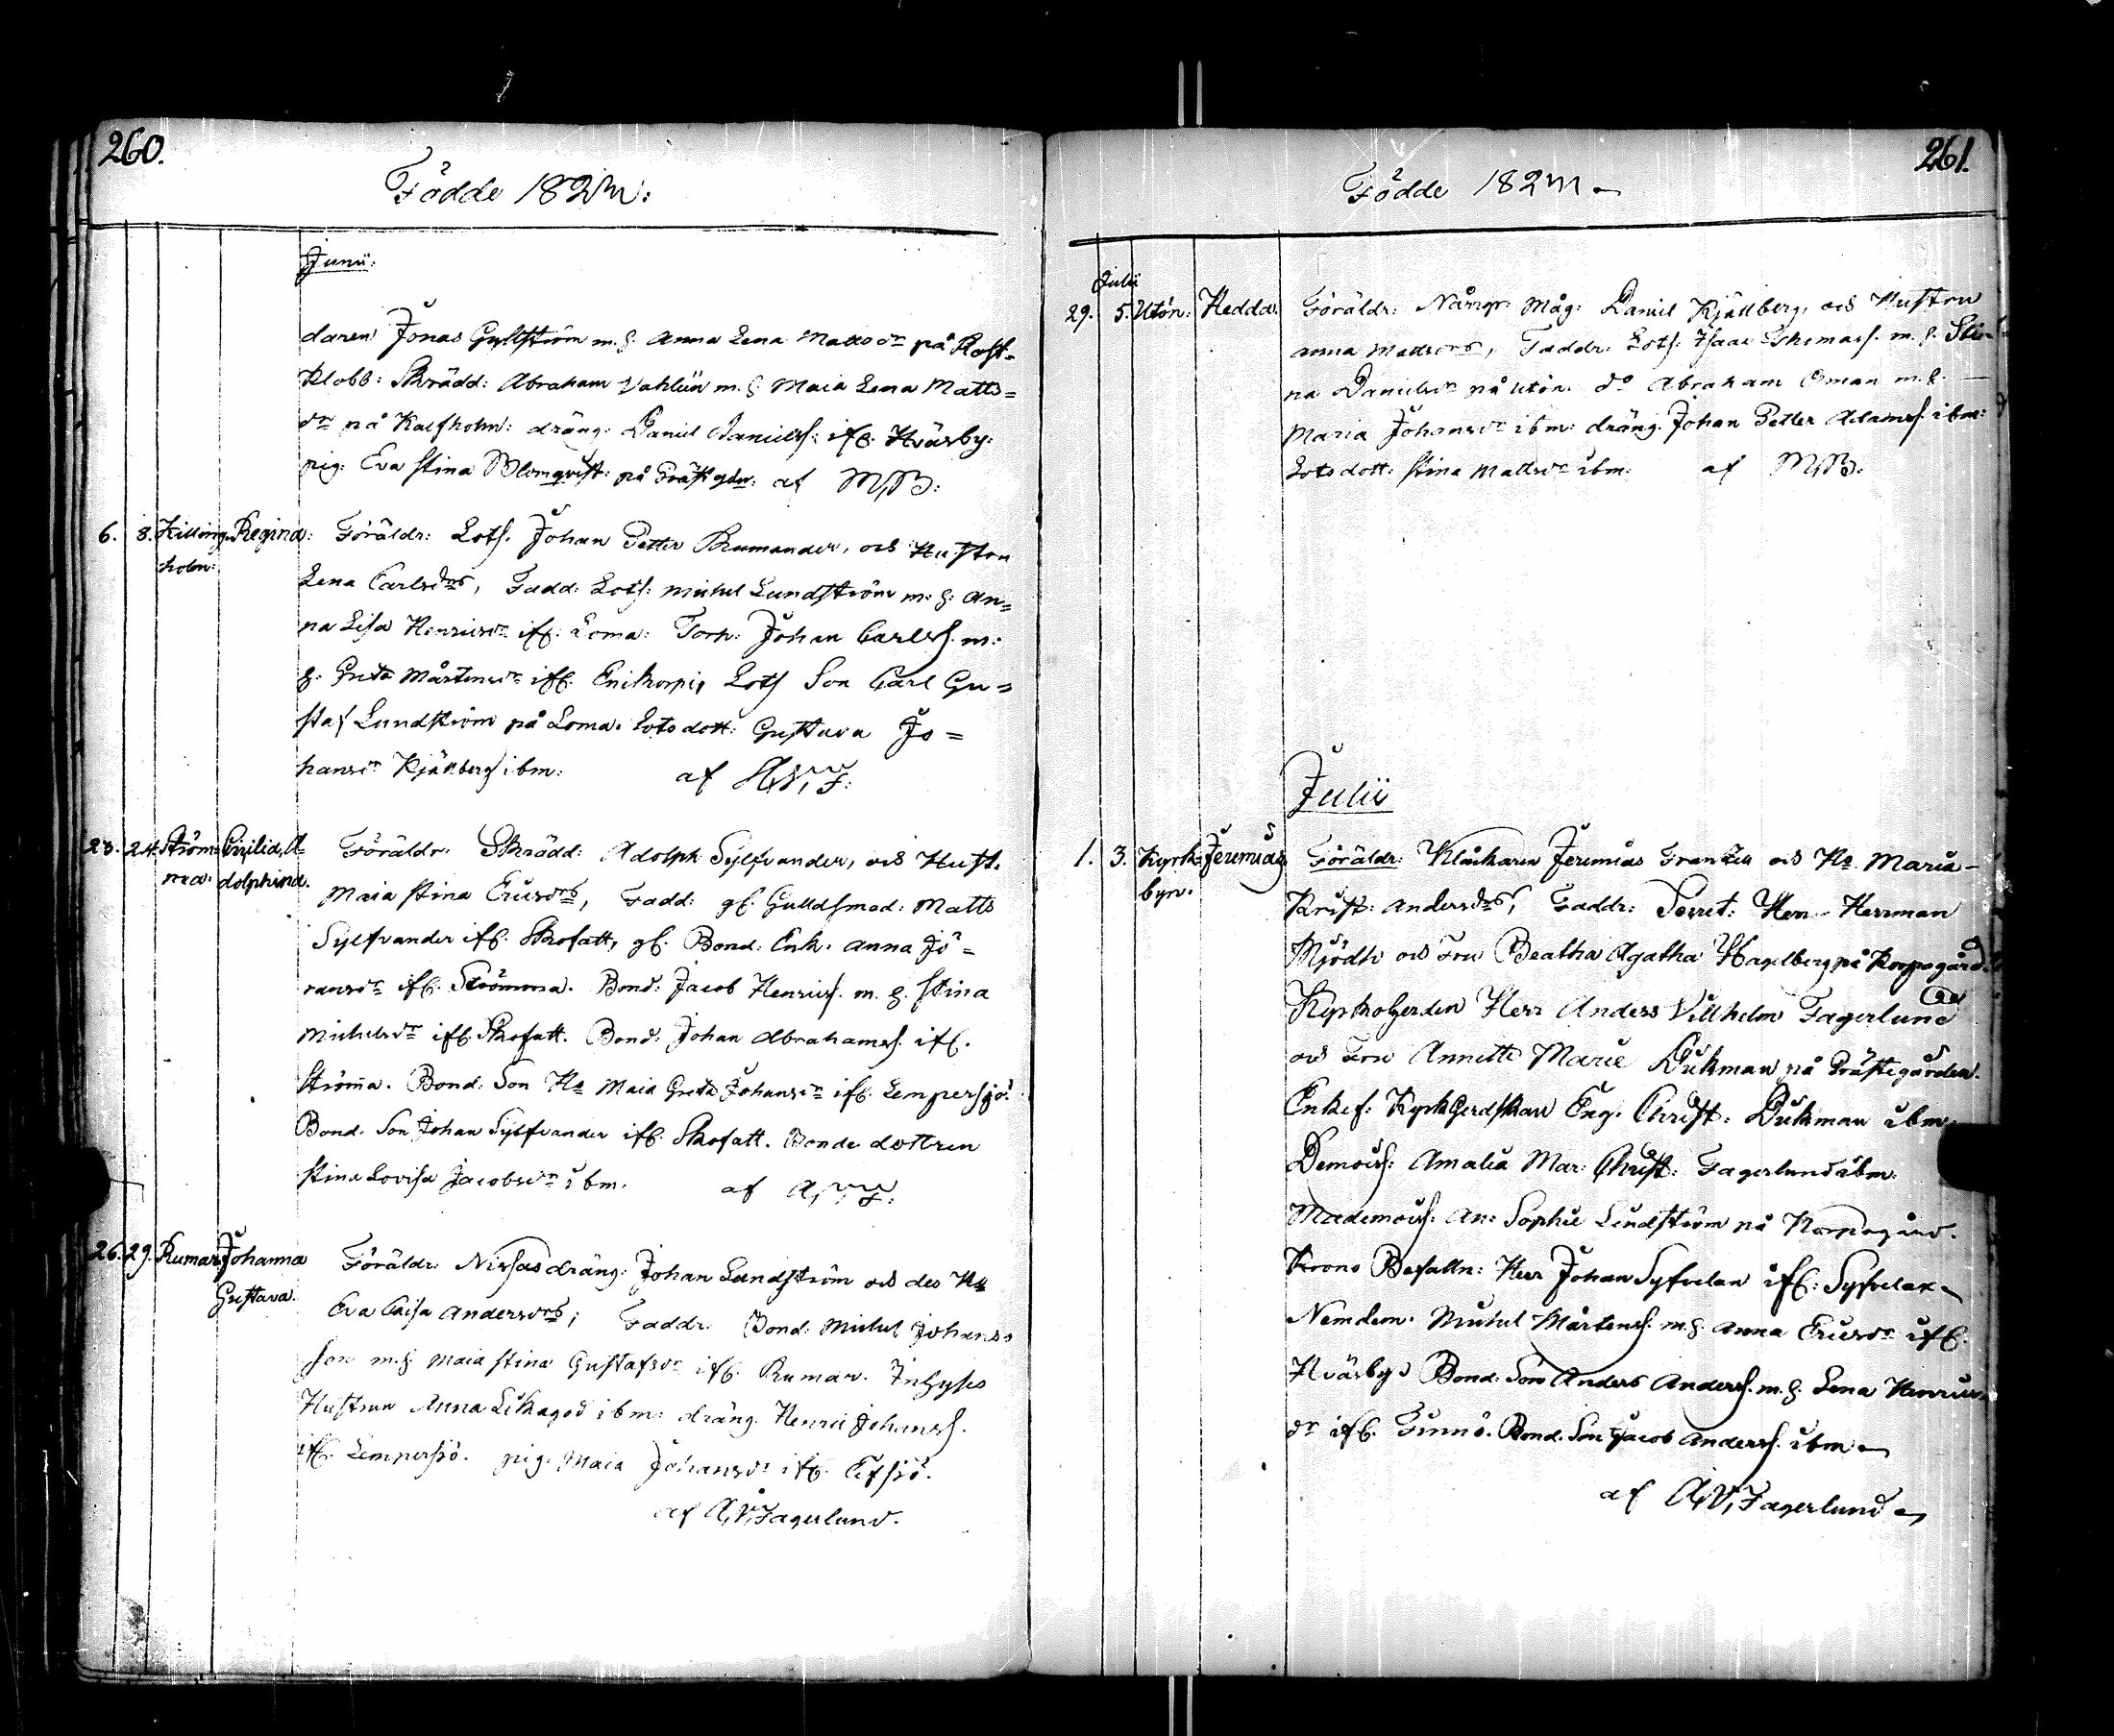 260.
Födde 182
Junii:
daren Jonas Gyllström m. h. Anna Lena Mattsdr på Kost=
klobb: Skrädd: Abraham Vahlün m. h Maia Lena Matts=
dr på Kalfholm: dräng: Daniel Daniels. ifr. Hväsby:
pig: Eva Stina Blomqvist: på Prästgdn: af M,B:
6. 8. Killing= Regina: Föräldr: Lots. Johan Petter Rumander, och Hustru
holm: Lena Carlsdr, Fadd: Lots: Michel Lundström m: h: An=
na Lisa Henricsdr ifr: Loma: Torp: Johan Carls. m:
h. Greta Mårtensdr ifr. Enikorpi, Lots Son Carl Gu=
staf Lundström på Loma. Lotsdott: Gustava Jo=
hansdr Kjällberg ibm: af A,V,F:
23. 24. Ström= Cecilia, A= Föräldr: Skrädd: Adolph Sylfvander, och Hust.
ma. dolphina. Maia Stina Ericsdr, Fadd: gf. Gulldsmed: Matts
Sylfvander ifr. Skofatt, gf. Bond: Enk: Anna Jö=
ransdr ifr. Strömma. Bond: Jacob Henrics. m. h. Stina
Michelsdr ifr. Skofatt. Bond: Johan Abrahams. ifr.
Strömma. Bond: Son Ha Maia Greta Johansdr ifr. Lempersjö.
Bond. Son Johan Sylfvander ifr. Skofatt. Bonde dottren
Stina Lovisa Jacobsdr ibm. af A,V,F:
26. 29. Rumar Johanna Föräldr: dräng: Johan Lundström och des Ha
Gustava. Eva Caisa Andersdr; Faddr. Bond: Michel Johans=
son m. h Maia Stina Gustafsdr ifr. Rumar. Inhyses
Hustrun Anna ibm: dräng. Henric Johans.
ifr. Lempersjö. pig. Maia Johansdr ifr.
af A,V,Fagerlund.
261.
Födde 182
Julii
29. 5. Utön: Hedda. Föräldr: Måg: Daniel Kjällberg, och Hustru
Anna Mattsdr, Faddr: Lots: Isaac Thomas. m. h. Sti=
na Danielsdr på Utön. do Abraham Öman m. h.
Maria Johansdr ibm: dräng. Johan Petter Adams. ibm:
Lotsdott: Stina Mattsdr ibm: af M,B:
Julii
1. 3. Kyrk= Jeremias Föräldr: Klåckaren Jeremias Franzen och Ha Maria
byn. Krist: Andersdr, Faddr: Secret: Herr Herrman
Mjödh och Fru Beatha Agatha Hagelberg på Korpogård.
Kyrkoherden Herr Anders Vilhelm Fagerlund
och Fru Annette Marie Dükman på Prästegården.
Enkef: Kyrkherdskan Eng. Christ: Dükman ibm.
Demois: Amalia Mar: Christ: Fagerlund ibm.
Mademois: An: Sophie Lindström på Korpogård.
Krono Befalln: Herr Johan Syfvelan ifr: Syfvelax
Nemdem. Michel Mårtens. m. h. Anna Ericsdr ifr.
Hväsby: Bond: Son Anders Anders. m. h. Lena Henrics=
dr ifr. Finnö. Bond. Son Jacob Anders. ibm
af A,V,Fagerlund